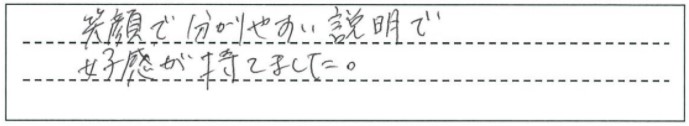 笑顔で分かりやすい説明で
好感が持てました。